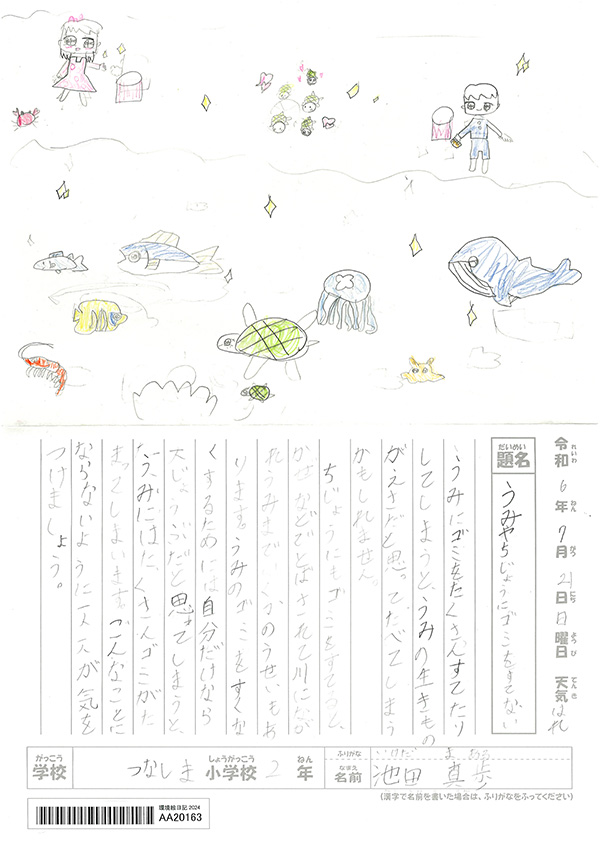 令和6年7月21日日曜日 天気 はれ
れいわ ねん がつ にち ようび てんき
だいめい
題名
うみやちじょうにゴミをすてない
うみにゴミをたくさんすてたり
してしまうと、うみの生きもの
がえさだと思ってたべてしまう
かもしれません。
ちじょうにもゴミをすてると、
かぜなどでとばされて川になが
れうみまでいくかのうせいもあ
ります。うみのゴミをすくな
くするためには自分だけなら
大じょうぶだと思ってしまうと、
うみにはたくさんゴミがた
まってしまいます。こんなことに
ならないように一人一人が気を
つけましょう。
がっこう しょうがっこう ねん
学校 つなしま小学校 2年
ふりがな いけだ まあゆ
なまえ
名前 池田 真歩
(漢字で名前を書いた場合は、ふりがなをふってください)
環境絵日記 2024
AA20163